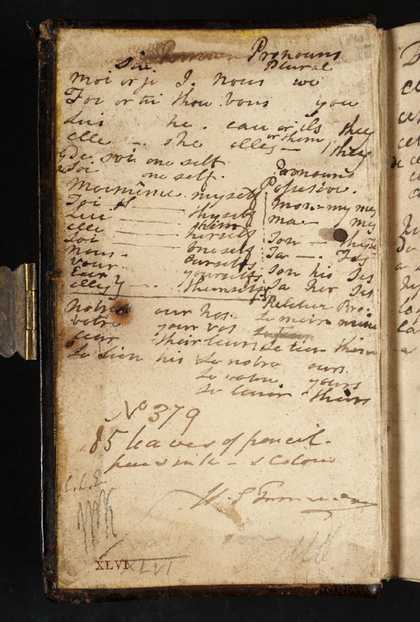 Pronouns
Plural
moi or je I. nous we
Toi or tu thou. vous you
Lui he. eux or ils they
elle — she elles — or them they
De. soi one self
Soi one self. Pronouns
Moimême. myself Possessive.
Toi — thyself Mon = my mes
Lui — himself ma — my
elle — herself Ton — thy
Soi — oneself Ta — Tes
Nous — ourselves Son his Ses
Vous — yourselves Sa her Ses
Eux
elles — themselves Relative Pro
notre our nos. Le mien mine
votre your vos
leur their leurs Le tien thine
Le sien his Le notre ours.
Le votre yours
Le leur theirs
No 379
85 leaves of pencil.
pen & ink — & Colour
C.L.E.
XLVI
XLVI